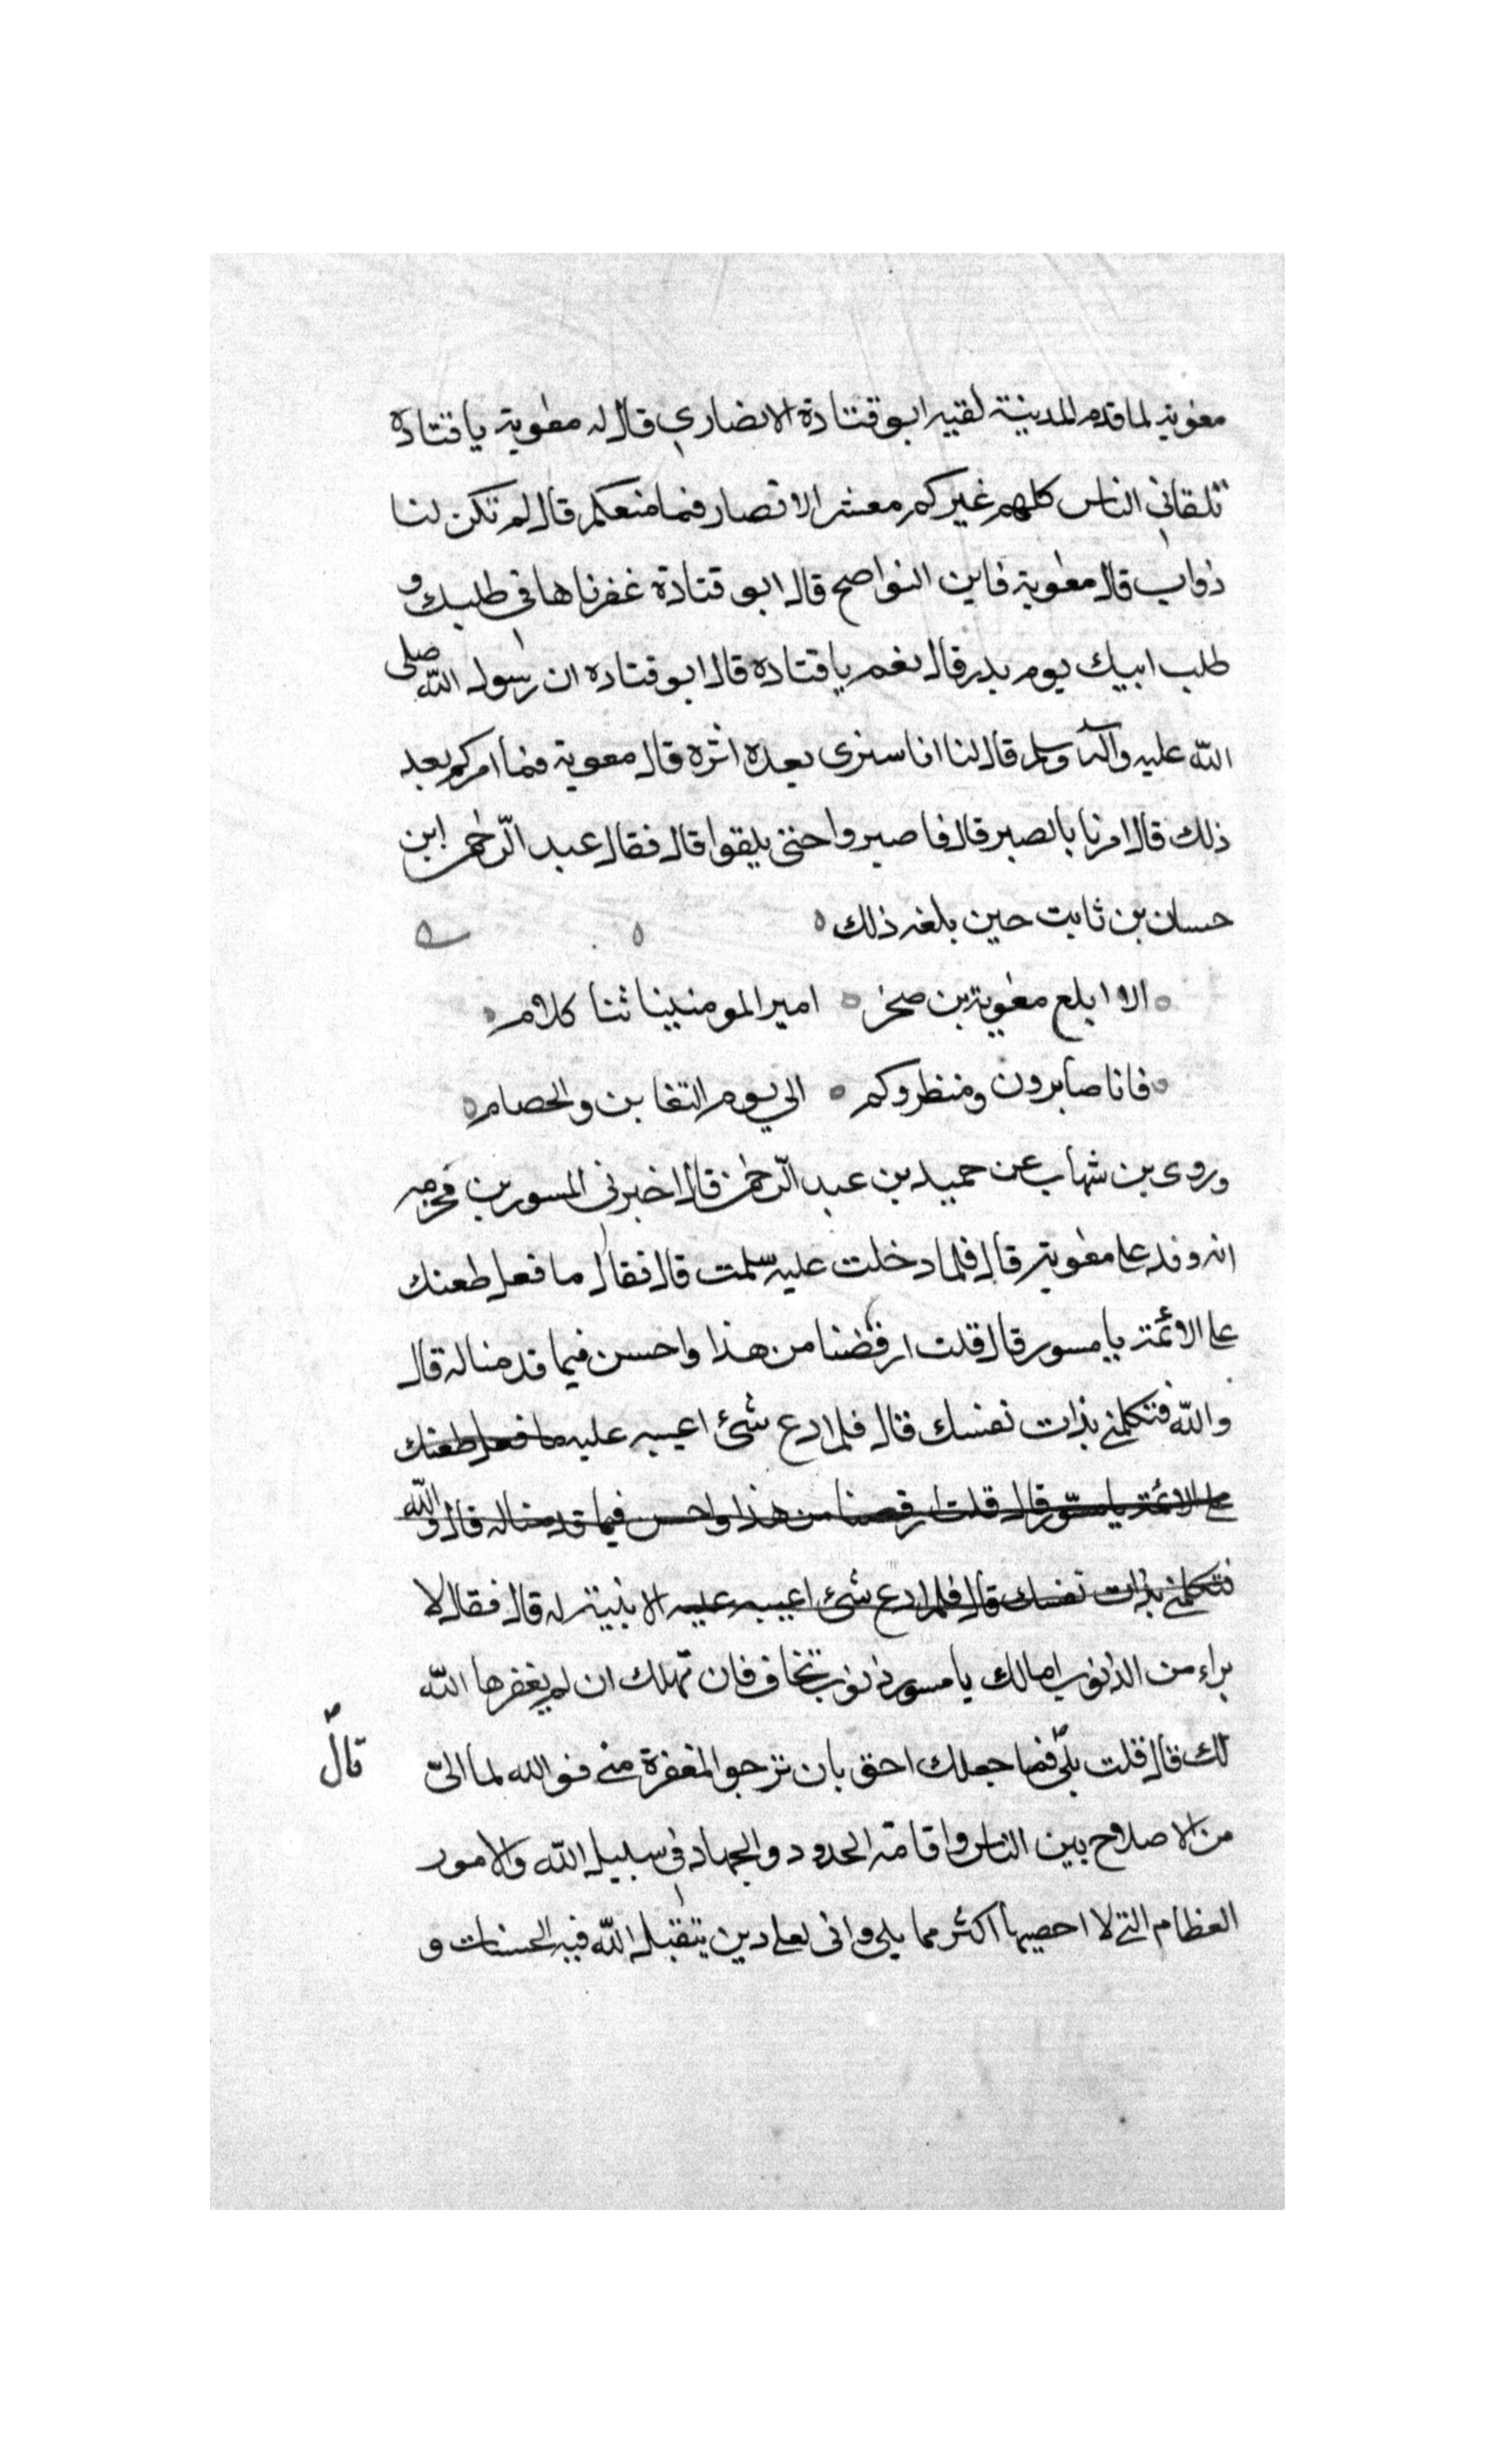 معوية لما قدم المدينة لقيه ابو قتادة الانصاري قال له معوية يا قتادة
تلقاني الناس كلهم غيركم معشر الانصار فما منعكم قال لم تكن لنا
دواب قال معوية فاين النواضح قال ابو قتادة عقرناها في طلبك و
طلب ابيك يوم بدر قال نعم يا قتادة قال ابو قتادة ان رسول الله صلى
الله عليه وآله وسلم قال لنا انا سنرى بعده اثرة قال معوية فما امركم بعد
ذلك قال امرنا بالصبر قال فاصبروا حتى يلقوا قال فقال عبد الرحمن ابن
حسان بن ثابت حين بلغه ذلك
الا ابلغ معوية بن صخر امير المومنين نثا كلام
فانا صابرون ومنظروكم الى يوم التغابن والخصام
وروى بن شهاب عن حميد بن عبد الرحمن قال اخبرني المسور بن مخرمه
انه وفد على معوية قال فلما دخلت عليه سلمت قال فقال ما فعل طعنك
على الائمة يا مسور قال قلت ارفضنا من هذا واحسن فيما قدمنا له قال
والله فتكلمني بذات نفسك قال فلم ادع شئ اعيبه عليه ما فعل طعنك
على الائمة يا مسور قال قلت ارفضنا من هذا واحسن فيما قدمنا له قال والله
فتكلمني بذات نفسك قال فلم ادع شئ اعيبه عليه الا بنيته له قال فقال لا
براء من الذنوب امالك يا مسور ذنوب تخاف فان تهلك ان لم يغفرها الله
لك قال قلت بلى فما جعلك احق بان ترجو المغفرة مني فوالله لما الى
قال
من الاصلاح بين الناس واقامة الحدود والجهاد في سبيل الله والامور
العظام التي لا احصيها اكثر مما يلى وانى لعلى دين يتقبل الله فيه الحسنات و